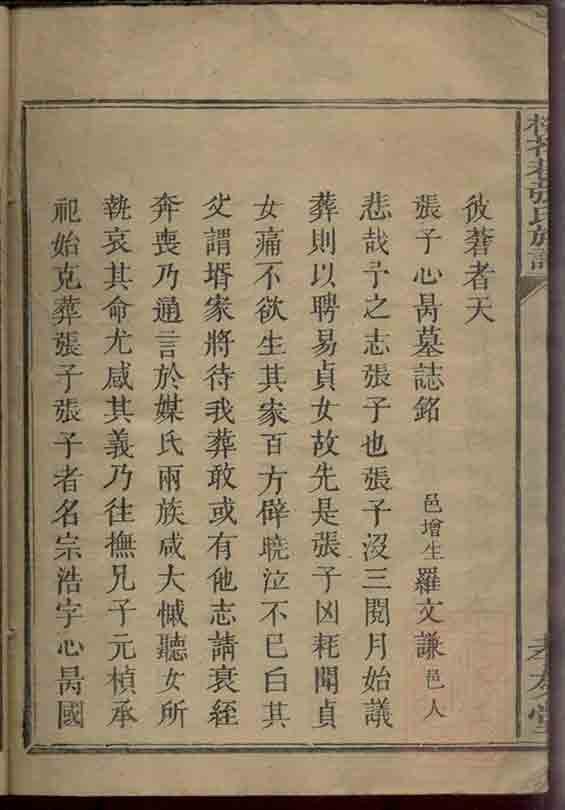 彼蒼者天
張子心暠墓誌銘 邑增生羅文謙邑人
悲哉予之志張子也張子沒三閱月始議
葬則以聘易貞女故先是張子凶耗聞貞
女痛不欲生其家百方僻曉泣不已白其
父謂壻家將待我葬敢或有他志請衰絰
奔喪乃通言於媒氏兩族咸大慽聽女所
執哀其命尤咸其義乃往撫兄子元楨承
祀始克葬張子張子者名宗浩字心暠國
張氏族譜
孝友堂